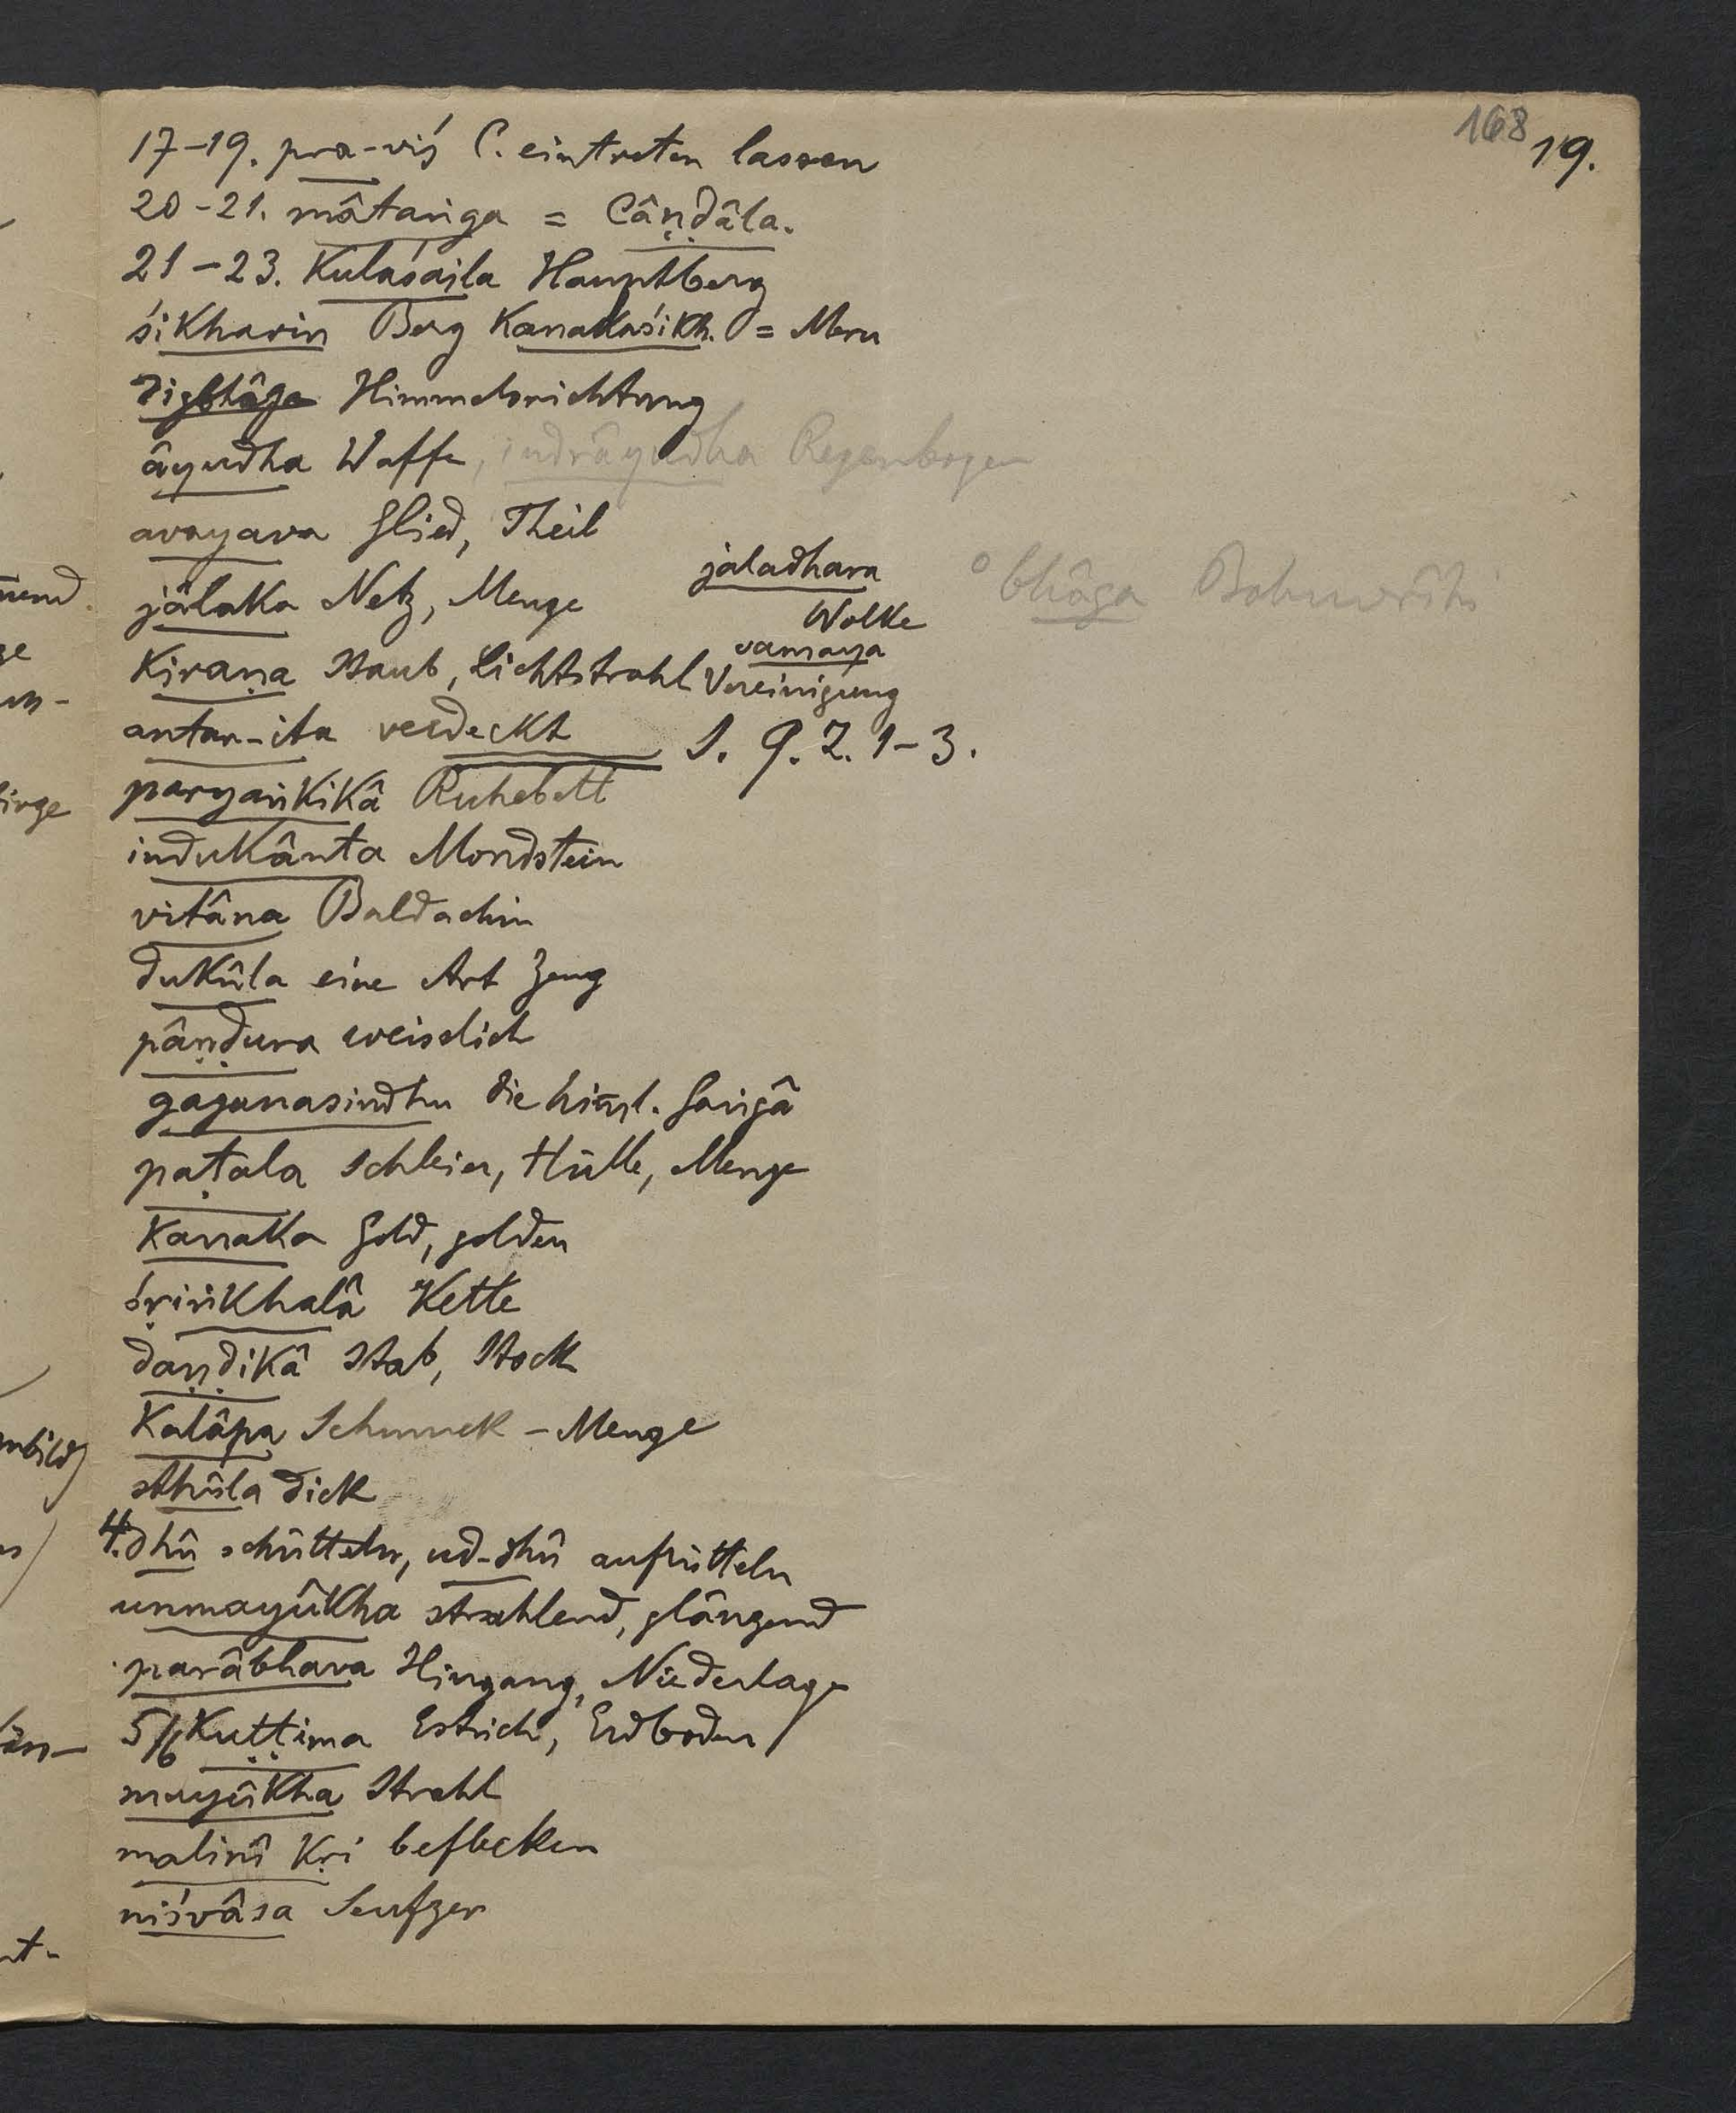 168 19.
17-19. pra-viś C. eintreten lassen
20-21. mâtaṅga = Câṇḍâla.
21-23. Kulaśaila Hauptberg
śikharin Berg Kanakaśikh. = Meru
digbhâga Himmelsrichtung
âyudha Waffe, indrâyudha Regenbogen
avayava Glied, Theil
jâlaka Netz, Menge
jaladhara
Wolke
° bhâga Bahuvrîhi
kiraṇa Staub, Lichtstrahl
Vereinigung
antar-ita verdeckt
S. 9. Z. 1-3.
paryaṅkikâ Ruhebett
indukânta Mondstein
vitâna Baldachin
dukûla eine Art Zeug
pâṇḍura weisslich
gaganasindhu die himl. Gaṅgâ
paṭala Schleier, Hülle, Menge
kanaka Gold, golden
śṛiṅkhalâ Kette
daṇḍikâ Stab, Stock
Kalâpa Schmuck - Menge
sthûla dick
4. dhû schütteln, ud-dhû aufrütteln
unmayûkha strahlend, glänzend
parâbhava Hingang, Niederlage
5/6 Kuṭṭima Estrich, Erdboden
mayûkha Strahl
malinî kṛi beflecken
niśvâsa Seufzer